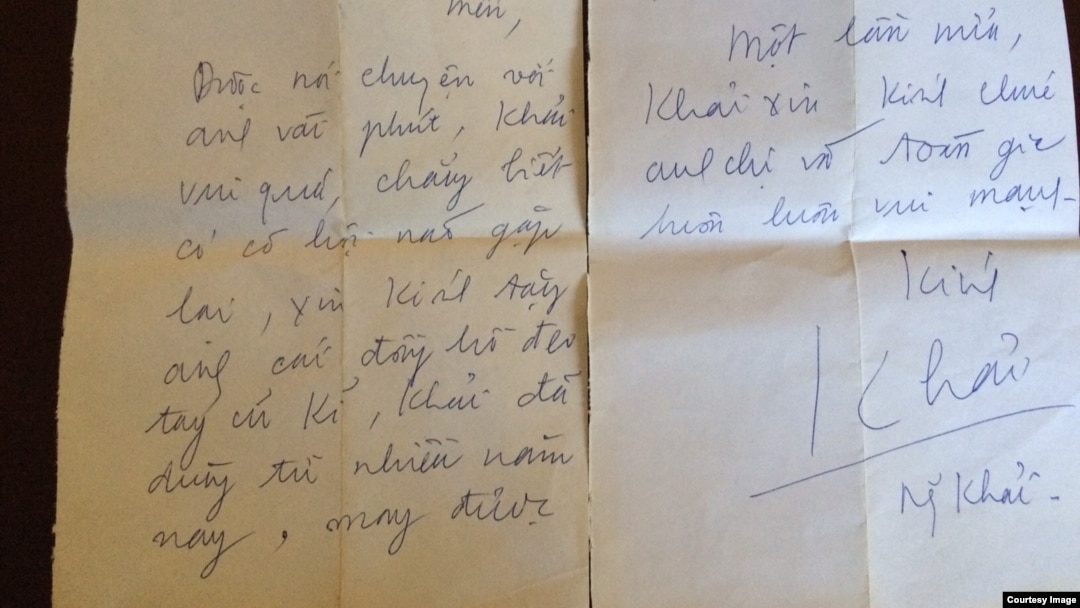 mến,
Được nói chuyện với
anh vài phút, Khải
vui quá, chẳng biết
có cơ hội nào gặp
lại, xin kính tặng
anh cái đồng hồ đeo
tay cũ kĩ, Khải đã
dùng từ nhiều năm
nay, may được
Một lần nữa,
Khải xin kính chúc
anh chị và toàn gia
luôn luôn vui mạnh -
Kính
Khải
Ng Khải -
Courtesy Image